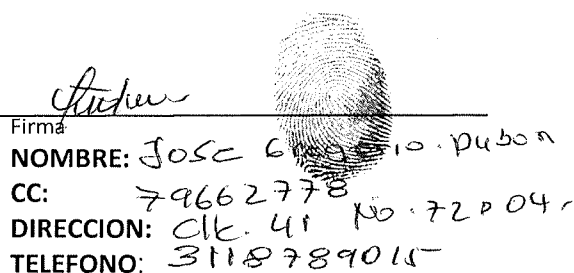 Firma
NOMBRE: Jose Gregorio. Pabon
CC: 79662778
DIRECCION: Clk. 41 No. 72 D 04.
TELEFONO: 3118789015